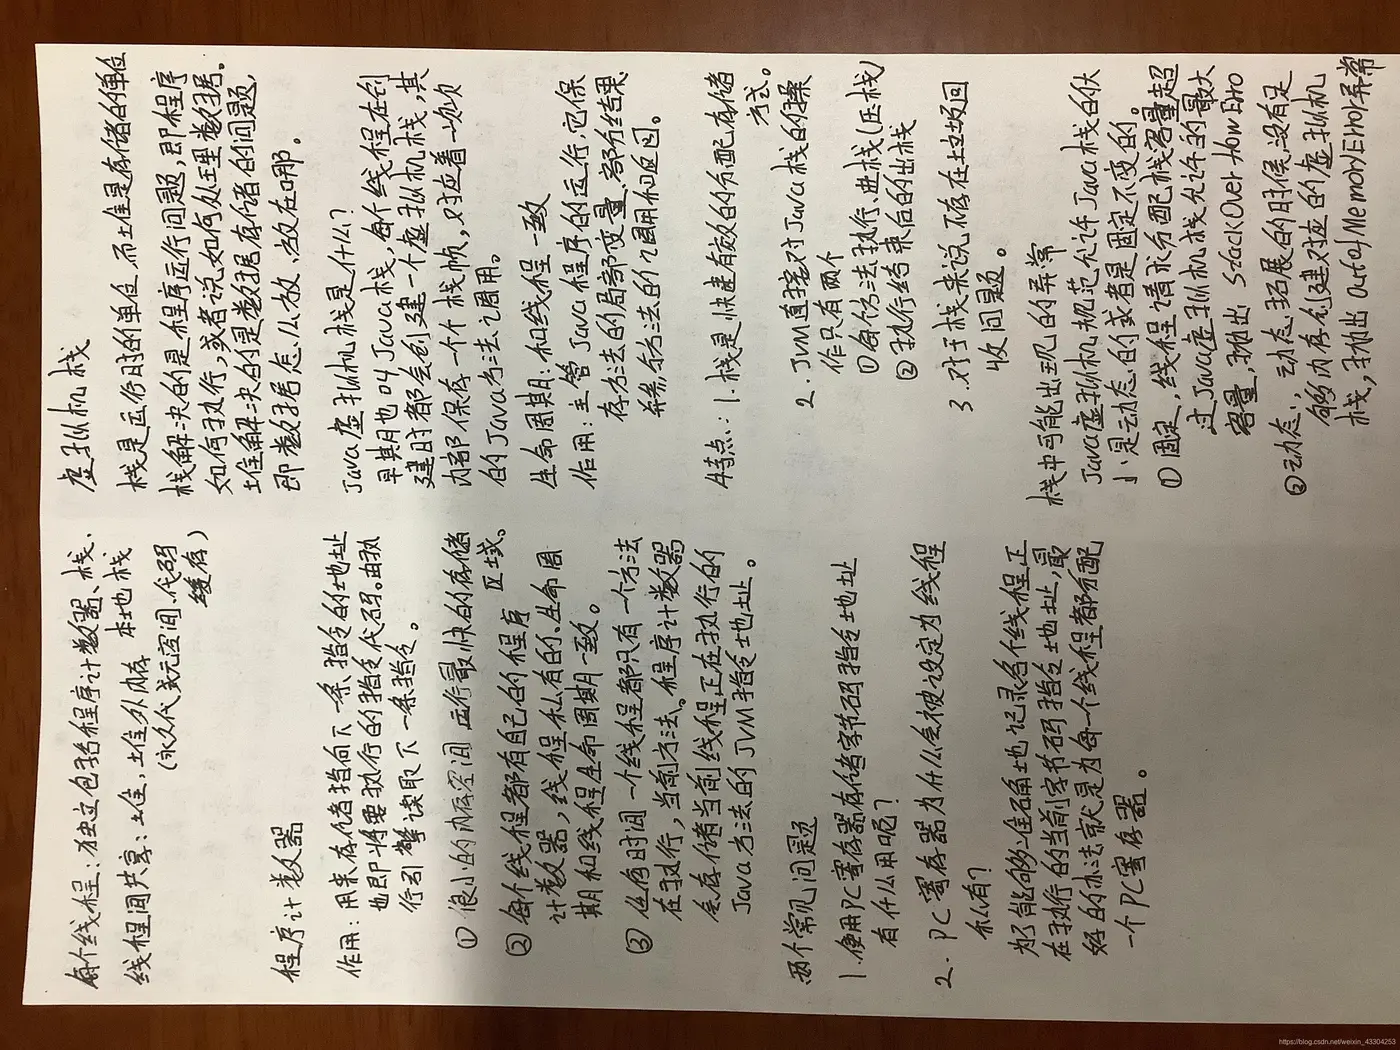 每个线程：独立包括程序计数器、栈、
本地栈
线程间共享：堆，堆外内存
（永久代或元空间、代码
缓存）
程序计数器
作用：用来存储指向下一条指令的地址
也即将要执行的指令代码。由执
行引擎读取下一条指令。
① 很小的内存空间 运行最快的存储
区域。
② 每个线程都有自己的程序
计数器，线程私有的、生命周
期和线程生命周期一致。
③ 任何时间一个线程都只有一个方法
在执行，当前方法。程序计数器
会存储当前线程正在执行的
Java方法的JVM指令地址。
两个常见问题
1.使用PC寄存器存储字节码指令地址
有什么用呢？
2. PC寄存器为什么会被设定为线程
私有？
为了能够准确地记录各个线程正
在执行的当前字节码指令地址，最
好的办法就是为每一个线程都分配
一个PC寄存器。
虚拟机栈
栈是运行时的单位，而堆是存储的单位
栈解决的是程序运行问题，即程序
如何执行，或者说如何处理数据。
堆解决的是数据存储的问题，
即数据怎么放、放在哪。
Java虚拟机栈是什么？
早期也叫Java栈，每个线程在创
建时都会创建一个虚拟机栈，其
内部保存一个个栈帧，对应着一次次
的Java方法调用。
生命周期：和线程一致
作用：主管Java程序的运行，它保
存方法的局部变量、部分结果，
并参与方法的调用和返回。
特点：1.栈是快速有效的分配存储
方式。
2. JVM直接对Java栈的操
作只有两个
①每个方法执行、进栈（压栈）
②执行结束后的出栈
3.对于栈来说不存在垃圾回
收问题。
栈中可能出现的异常
Java虚拟机规范允许Java栈的大
小是动态的或者是固定不变的。
① 固定，线程请求分配栈容量超
过Java虚拟机栈允许的最大
容量，抛出 StackOverHowError
②动态，动态拓展的时候没有足
够内存创建对应的虚拟机
栈，抛出OutofMemoryError异常
https://blog.csdn.net/weixin_43304253